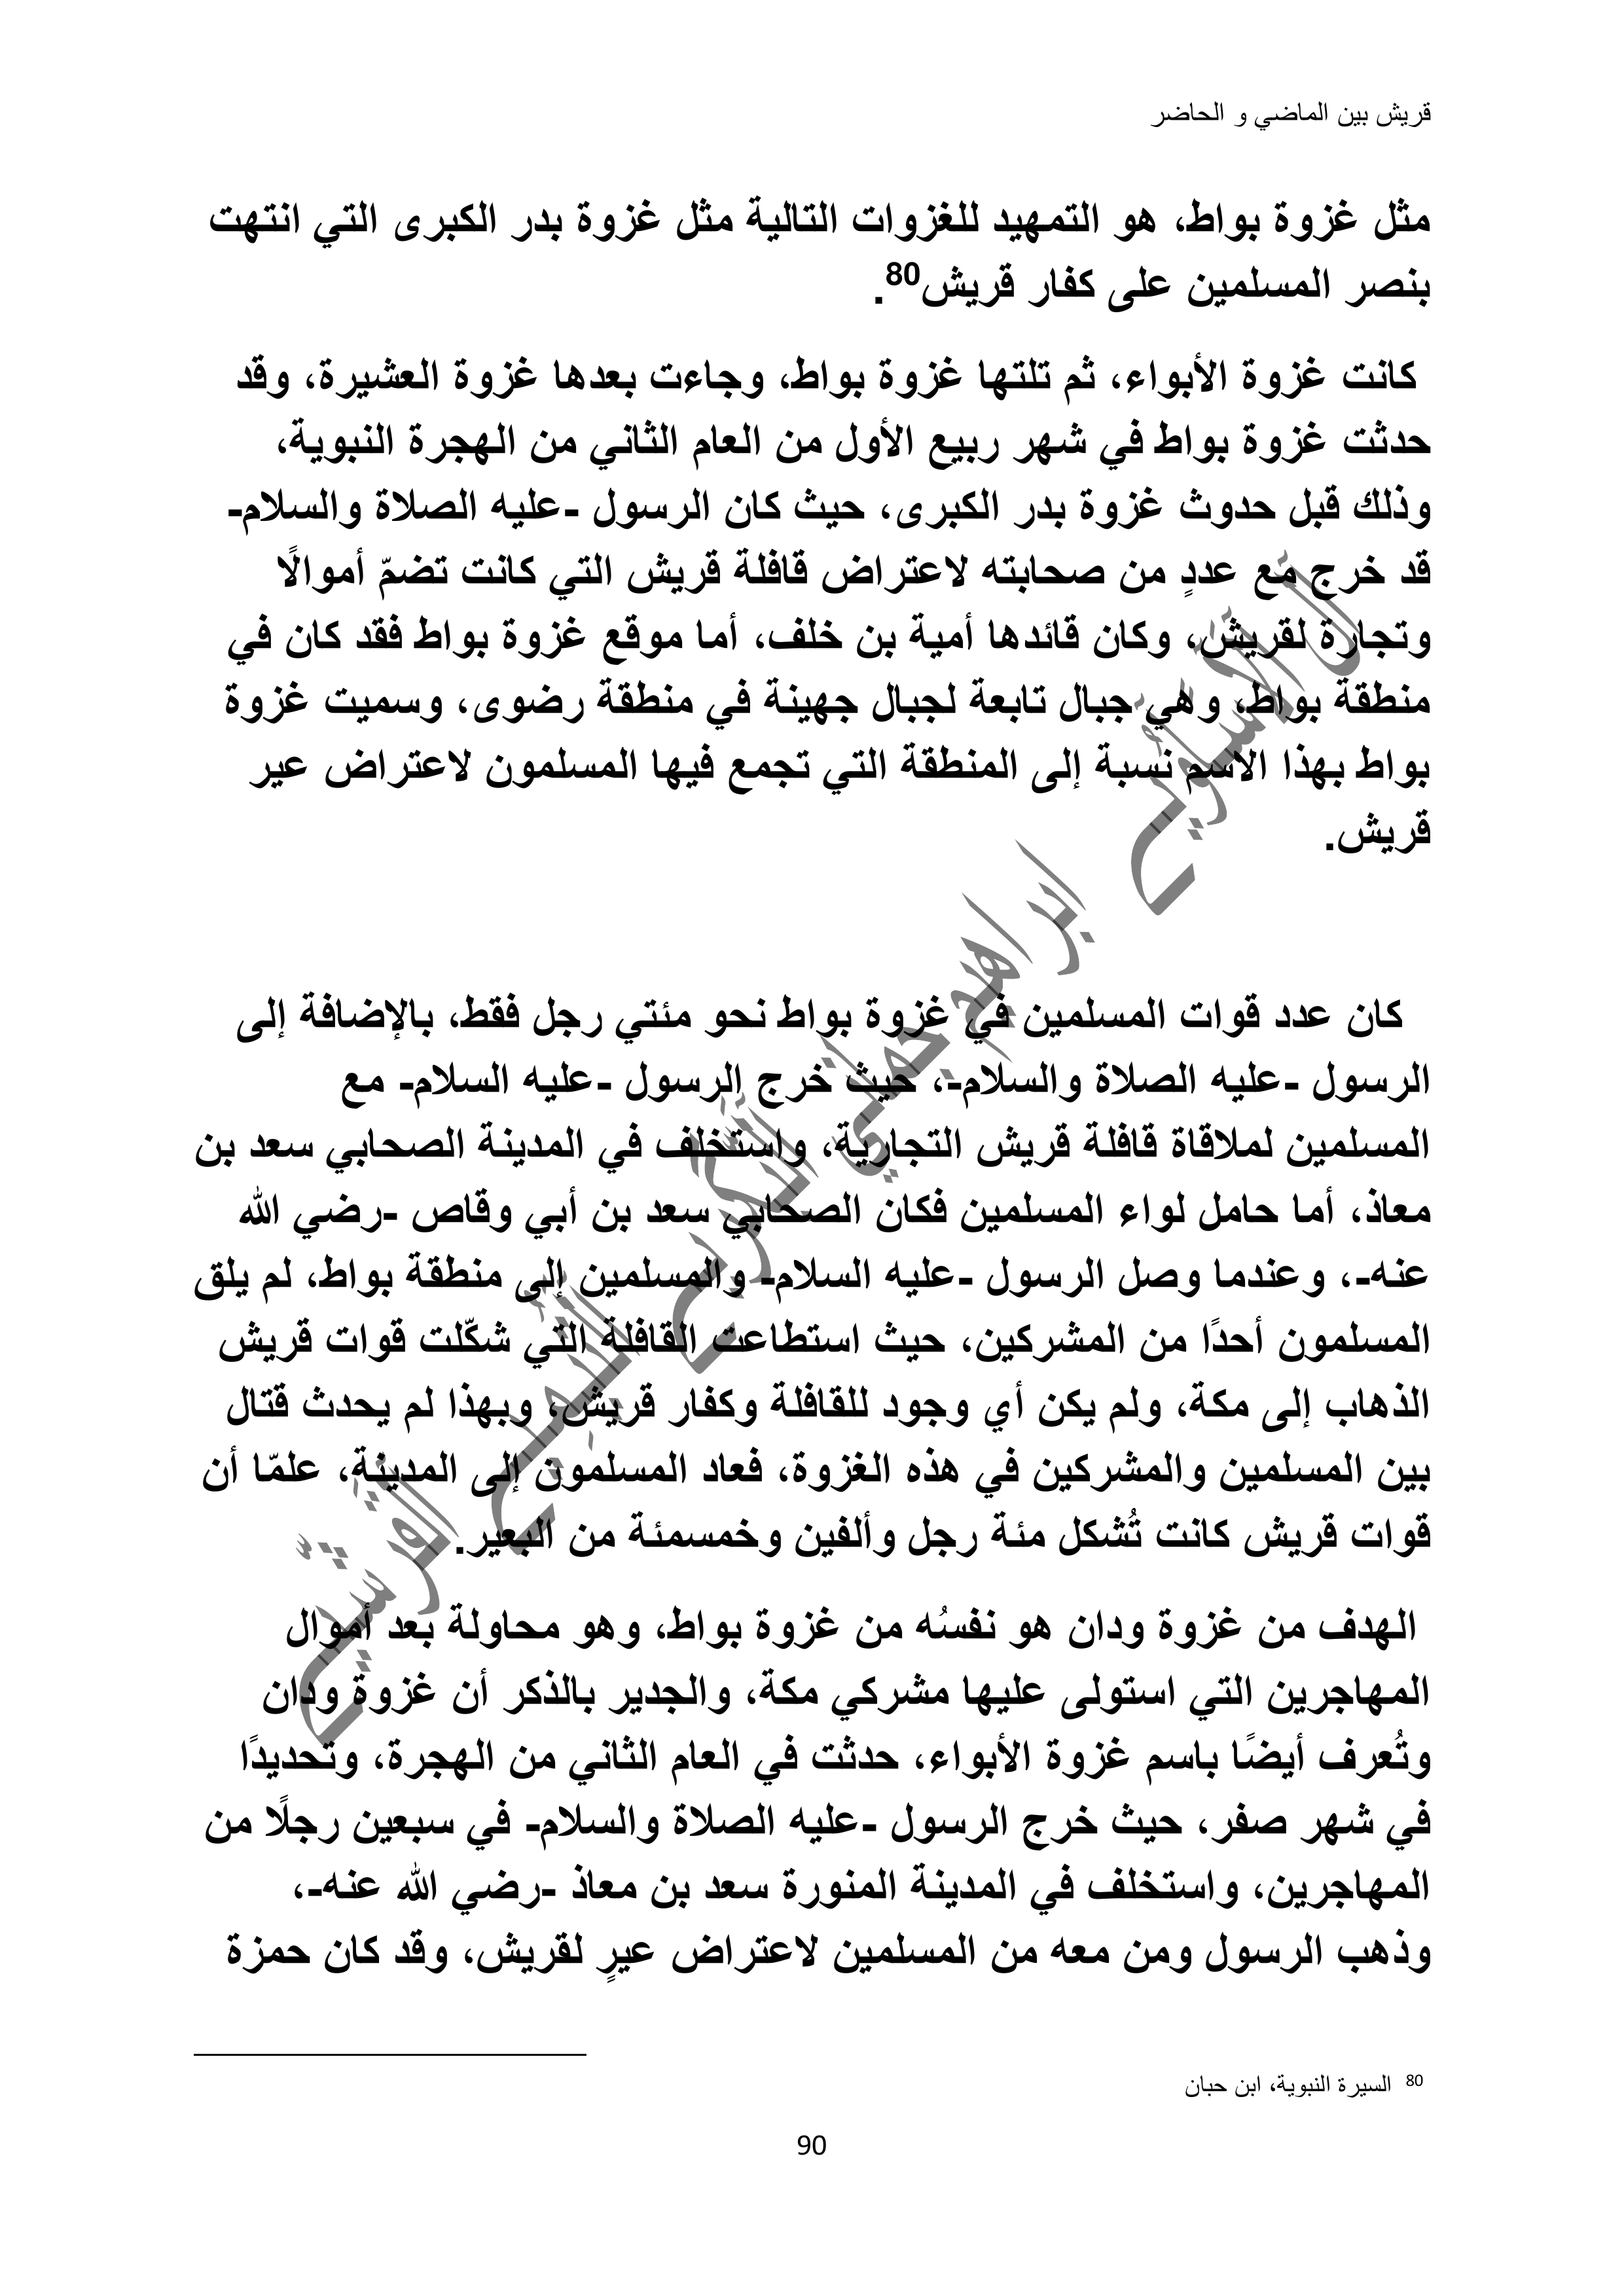 قريش بين الماضي و الحاضر
مثل غزوة بواط، هو التمهيد للغزوات التالية مثل غزوة بدر الكبرى التي انتهت
بنصر المسلمين على كفار قريش80.
كانت غزوة الأبواء، ثم تلتها غزوة بواط، وجاءت بعدها غزوة العشيرة، وقد
حدثت غزوة بواط في شهر ربيع الأول من العام الثاني من الهجرة النبوية،
وذلك قبل حدوث غزوة بدر الكبرى، حيث كان الرسول -عليه الصلاة والسلام-
قد خرج مع عددٍ من صحابته لاعتراض قافلة قريش التي كانت تضمّ أموالًا
وتجارة لقريش، وكان قائدها أمية بن خلف، أما موقع غزوة بواط فقد كان في
منطقة بواط، وهي جبال تابعة لجبال جهينة في منطقة رضوى، وسميت غزوة
بواط بهذا الاسم نسبة إلى المنطقة التي تجمع فيها المسلمون لاعتراض عير
قريش.
كان عدد قوات المسلمين في غزوة بواط نحو مئتي رجل فقط، بالإضافة إلى
الرسول -عليه الصلاة والسلام-، حيث خرج الرسول -عليه السلام- مع
المسلمين لملاقاة قافلة قريش التجارية، واستخلف في المدينة الصحابي سعد بن
معاذ، أما حامل لواء المسلمين فكان الصحابي سعد بن أبي وقاص -رضي الله
عنه-، وعندما وصل الرسول -عليه السلام- والمسلمين إلى منطقة بواط، لم يلق
المسلمون أحدًا من المشركين، حيث استطاعت القافلة التي شكّلت قوات قريش
الذهاب إلى مكة، ولم يكن أي وجود للقافلة وكفار قريش، وبهذا لم يحدث قتال
بين المسلمين والمشركين في هذه الغزوة، فعاد المسلمون إلى المدينة، علمّا أن
قوات قريش كانت تُشكل مئة رجل وألفين وخمسمئة من البعير.
الهدف من غزوة ودان هو نفسُه من غزوة بواط، وهو محاولة بعد أموال
المهاجرين التي استولى عليها مشركي مكة، والجدير بالذكر أن غزوة ودان
وتُعرف أيضًا باسم غزوة الأبواء، حدثت في العام الثاني من الهجرة، وتحديدًا
في شهر صفر، حيث خرج الرسول -عليه الصلاة والسلام- في سبعين رجلًا من
المهاجرين، واستخلف في المدينة المنورة سعد بن معاذ -رضي الله عنه-،
وذهب الرسول ومن معه من المسلمين لاعتراض عيرٍ لقريش، وقد كان حمزة
80 السيرة النبوية، ابن حبان
90